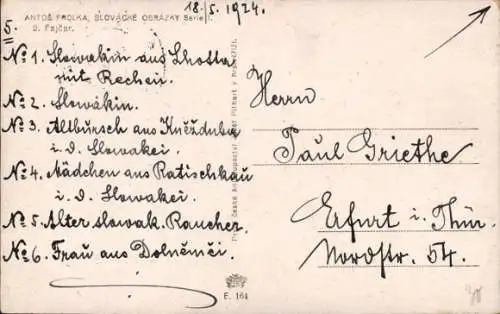 18./5. 1924.
ANTOŠ FROLKA, SLOVÁCKÉ OBRÁZKY Serie I.
5. Fajčar.
5.
No 1. Slowakin aus Lhotta
mit Rechen.
No 2. Slowakin.
No 3. Altbursch aus Kněždubu
i. d. Slowakei.
No 4. Mädchen aus Ratischkau
i. d. Slowakei.
No 5. Alter slowak. Raucher.
No 6. Frau aus Dolněmči.
Herrn
Paul Griethe
Erfurt i. Thür.
Nordstr. 54.
E. 164